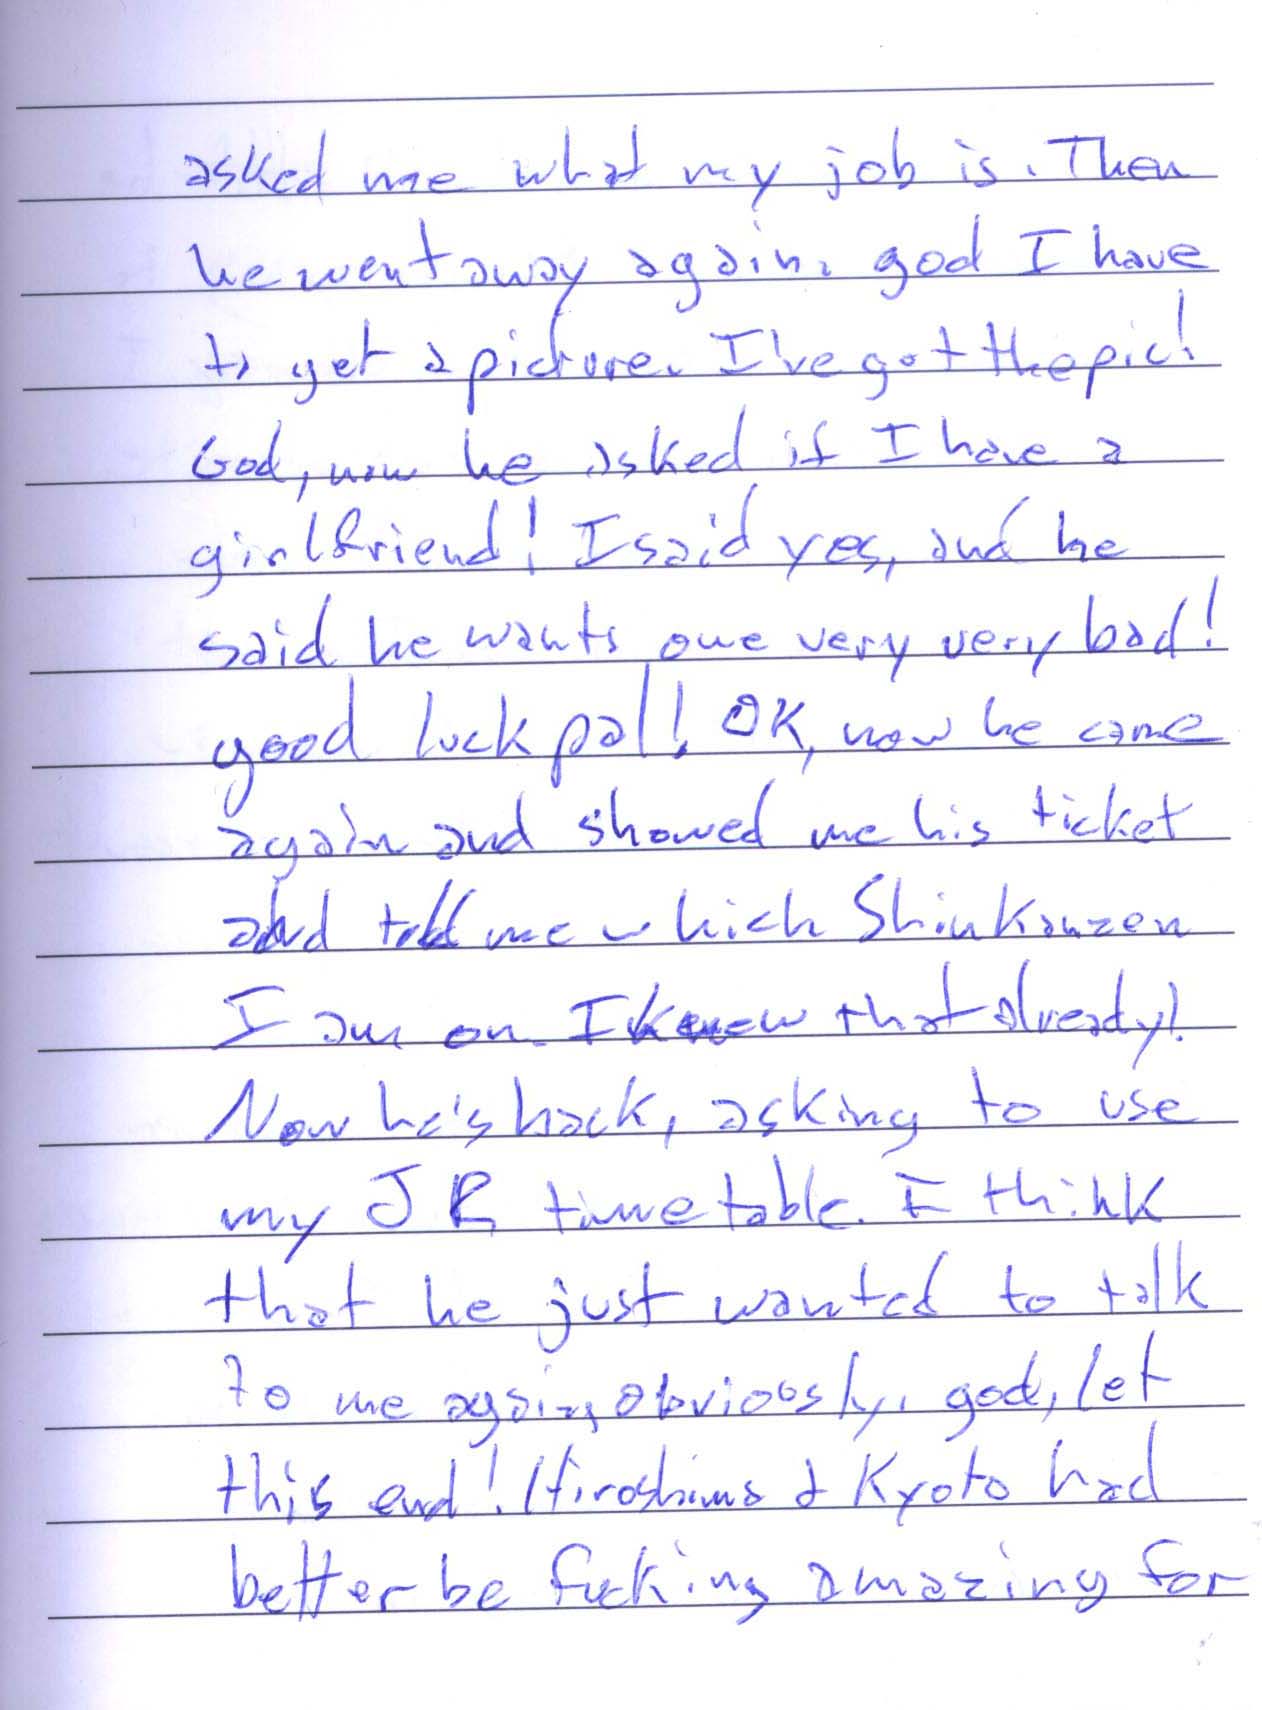 asked me what my job is. Then
he went away again. god I have
to get a picture. I've got the pic!
God, now he asked if I have a
girlfriend! I said yes, and he
said he wants one very very bad!
good luck pal! OK, now he came
again and showed me his ticket
and told me which Shinkanzen
I am on. I knew that already!
Now he's back, asking to use
my JR timetable. I think
that he just wanted to talk
to me again, obviously. god, let
this end! Hiroshima & Kyoto had
better be fucking amazing for